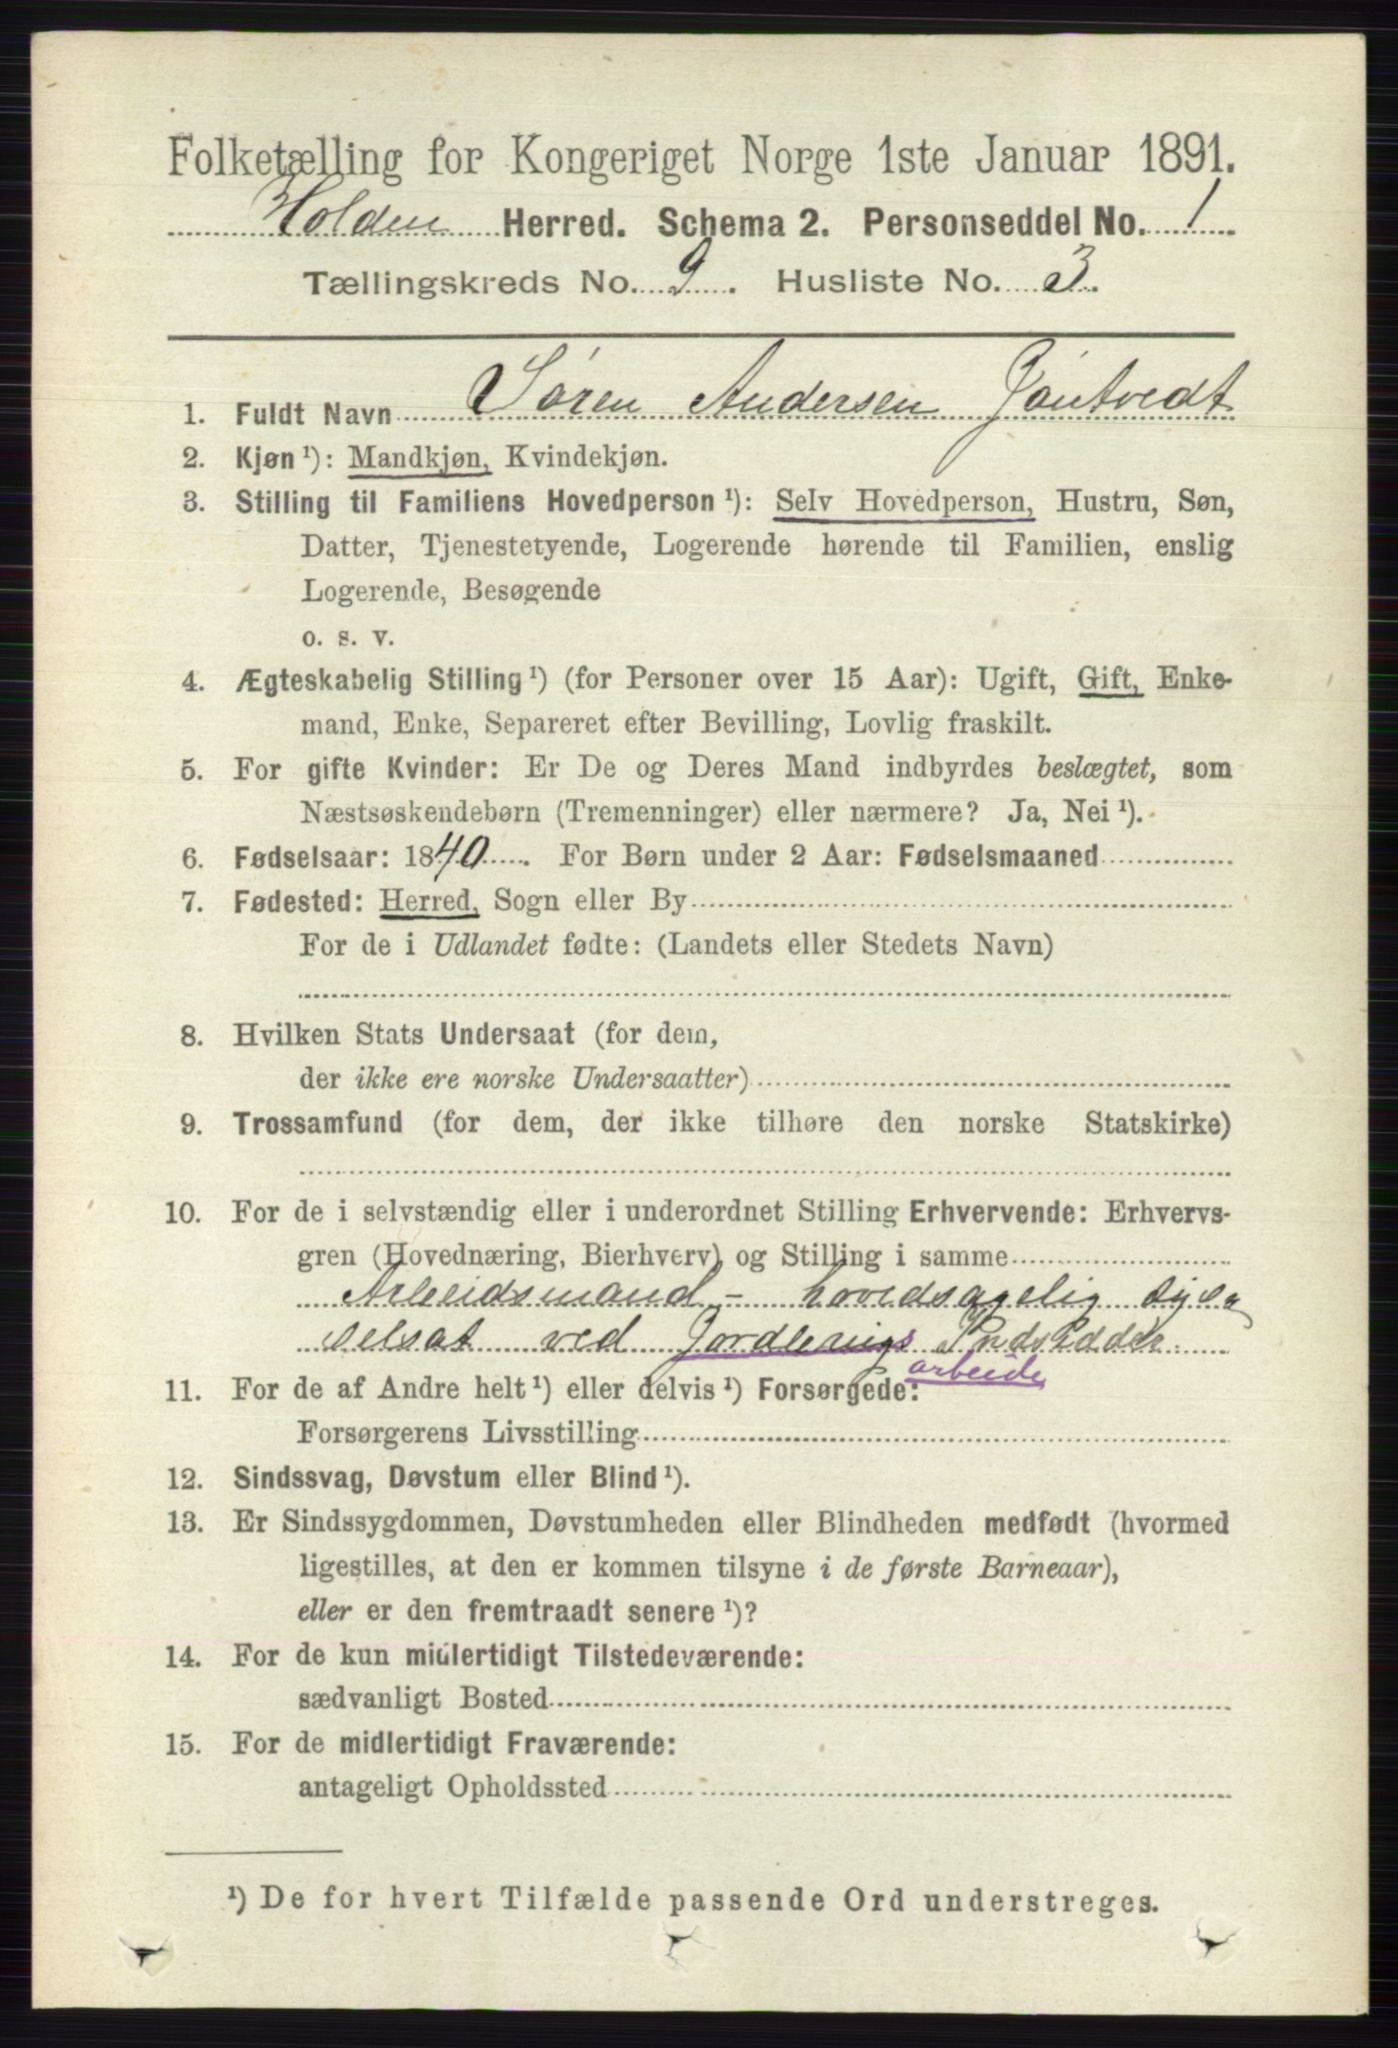 Folketælling for Kongeriget Norge 1ste Januar 1891.
Holden Herred. Schema 2. Personseddel No. 1
Tællingskreds No. 9. Husliste No. 3.
1. Fuldt Navn Søren Andersen
2. Kjøn ¹): Mandkjøn, Kvindekjøn.
3. Stilling til Familiens Hovedperson ¹): Selv Hovedperson, Hustru, Søn,
Datter, Tjenestetyende, Logerende hørende til Familien, enslig
Logerende, Besøgende
o. s. v.
4. Ægteskabelig Stilling ¹) (for Personer over 15 Aar): Ugift, Gift, Enke-
mand, Enke, Separeret efter Bevilling, Lovlig fraskilt.
5. For gifte Kvinder: Er De og Deres Mand indbyrdes beslægtet, som
Næstsøskendebørn (Tremenninger) eller nærmere? Ja, Nei ¹).
6. Fødselsaar: 1840. For Børn under 2 Aar: Fødselsmaaned
7. Fødested: Herred, Sogn eller By
For de i Udlandet fødte: (Landets eller Stedets Navn)
8. Hvilken Stats Undersaat (for dem,
der ikke ere norske Undersaatter)
9. Trossamfund (for dem, der ikke tilhøre den norske Statskirke)
10. For de i selvstændig eller i underordnet Stilling Erhvervende: Erhvervs-
gren (Hovednæring, Bierhverv) og Stilling i samme
Arbeidsmand - hovedsagelig
selsat ved
arbeide
11. For de af Andre helt ¹) eller delvis ¹) Forsørgede:
Forsørgerens Livsstilling
12. Sindssvag, Døvstum eller Blind ¹).
13. Er Sindssygdommen, Døvstumheden eller Blindheden medfødt (hvormed
ligestilles, at den er kommen tilsyne i de første Barneaar),
eller er den fremtraadt senere ¹)?
14. For de kun midlertidigt Tilstedeværende:
sædvanligt Bosted
15. For de midlertidigt Fraværende:
antageligt Opholdssted
¹) De for hvert Tilfælde passende Ord understreges.